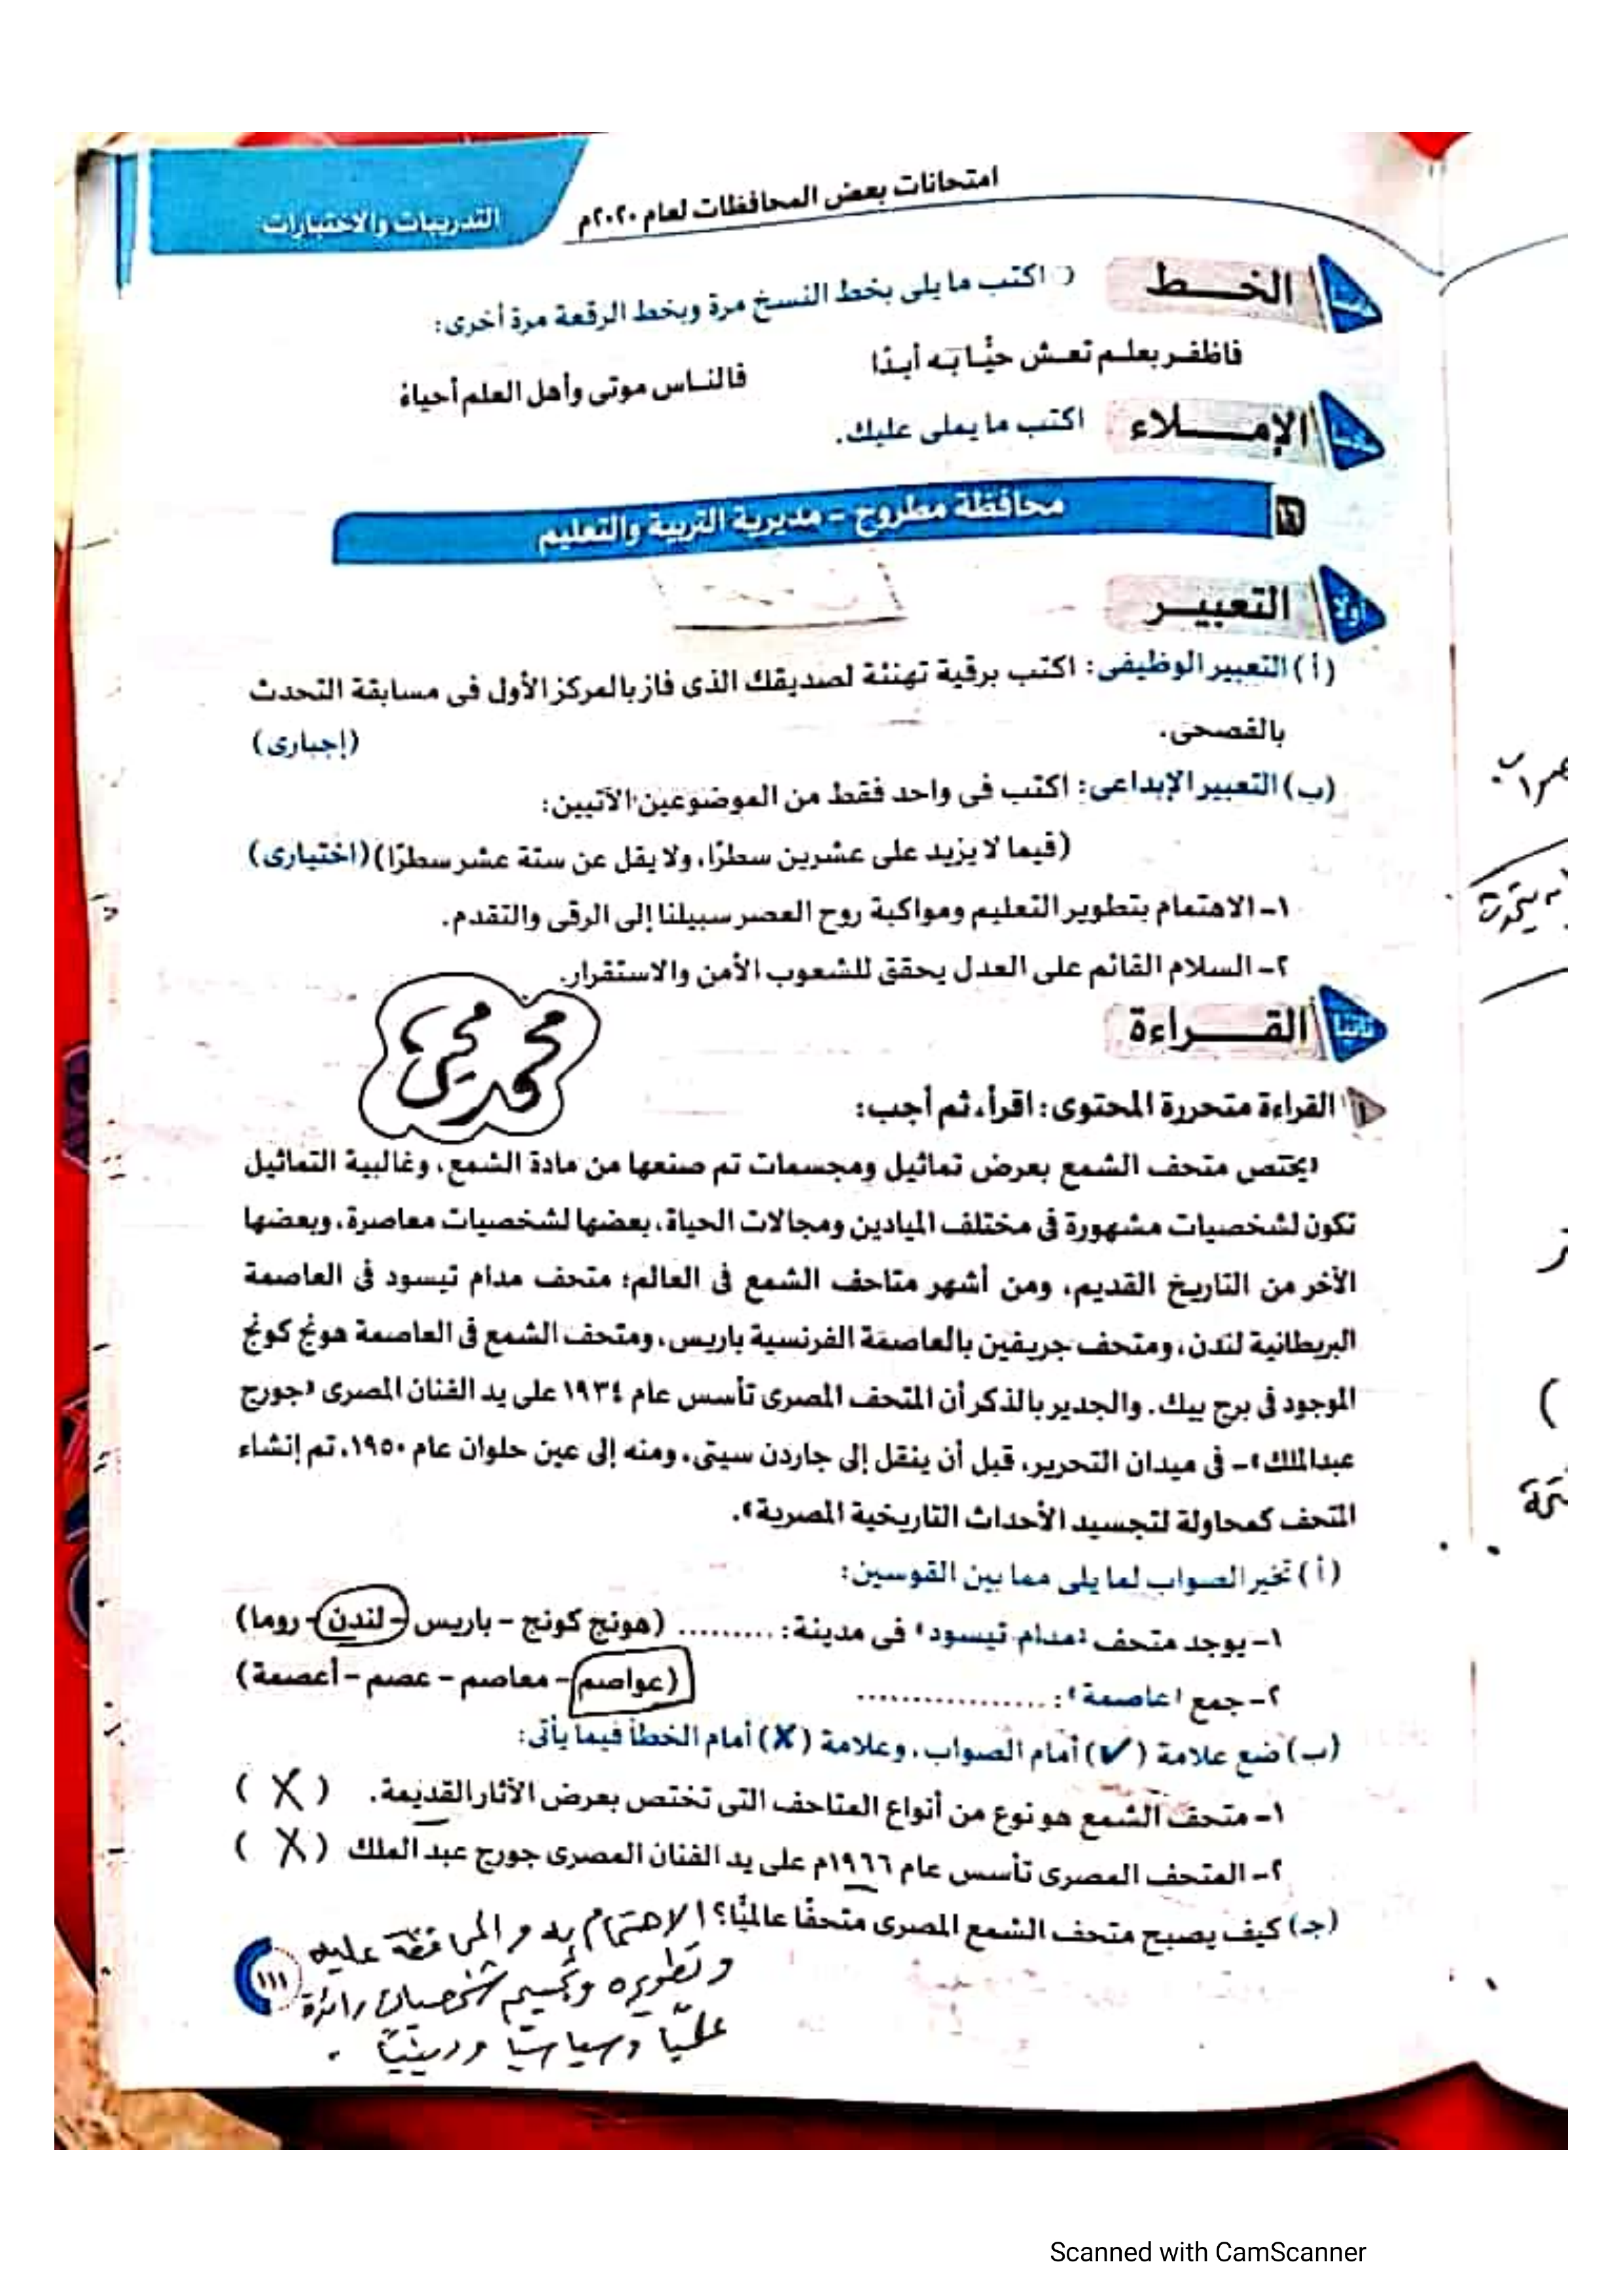 امتحانات بعض المحافظات لعام ٢٠٢٠م
التدريبات والاختبارات
الخـــط
اكتب ما يلى بخط النسخ مرة وبخط الرقعة مرة أخرى:
فاظفـر بعلـم تعـش حيًّـا بـه أبـدًا
فالنـاس موتى وأهل العلم أحياءُ
الإمـــــلاء
اكتب ما يملى عليك.
١٦ محافظة مطروح - مديرية التربية والتعليم
أولاً التعبيـــر
(أ) التعبير الوظيفى: اكتب برقية تهنئة لصديقك الذى فاز بالمركز الأول فى مسابقة التحدث
بالفصحى.
(إجبارى)
(ب) التعبير الإبداعى: اكتب فى واحد فقط من الموضوعين الآتيين:
(فيما لا يزيد على عشرين سطرًا، ولا يقل عن ستة عشر سطرًا) (اختيارى)
١- الاهتمام بتطوير التعليم ومواكبة روح العصر سبيلنا إلى الرقى والتقدم.
٢- السلام القائم على العدل يحقق للشعوب الأمن والاستقرار.
ثانيًا القـــــراءة
محمد
القراءة متحررة المحتوى: اقرأ، ثم أجب:
«يختص متحف الشمع بعرض تماثيل ومجسمات تم صنعها من مادة الشمع، وغالبية التماثيل
تكون لشخصيات مشهورة فى مختلف الميادين ومجالات الحياة، بعضها لشخصيات معاصرة، وبعضها
الآخر من التاريخ القديم، ومن أشهر متاحف الشمع فى العالم: متحف مدام تيسود فى العاصمة
البريطانية لندن، ومتحف جريفين بالعاصمة الفرنسية باريس، ومتحف الشمع فى العاصمة هونج كونج
الموجود فى برج بيك. والجدير بالذكر أن المتحف المصرى تأسس عام ١٩٣٤ على يد الفنان المصرى «جورج
عبدالملك»- فى ميدان التحرير، قبل أن ينقل إلى جاردن سيتى، ومنه إلى عين حلوان عام ١٩٥٠، تم إنشاء
المتحف كمحاولة لتجسيد الأحداث التاريخية المصرية».
(أ) تخير الصواب لما يلى مما بين القوسين:
١- يوجد متحف «مدام تيسود» فى مدينة: ......... (هونج كونج - باريس - لندن - روما)
٢- جمع «عاصمة»: .................. (عواصم - معاصم - عصم - أعصمة)
(ب) ضع علامة (✔) أمام الصواب، وعلامة (✗) أمام الخطأ فيما يأتى:
١- متحف الشمع هو نوع من أنواع المتاحف التى تختص بعرض الآثار القديمة. (X)
٢- المتحف المصرى تأسس عام ١٩٦٦م على يد الفنان المصرى جورج عبد الملك (X)
(جـ) كيف يصبح متحف الشمع المصرى متحفًا عالميًّا؟ الاهتمام به والمحافظة عليه
وتطويره وتجسيم شخصيات رائدة
علميًا وسياسيًا ودينيًا.
١١١
Scanned with CamScanner